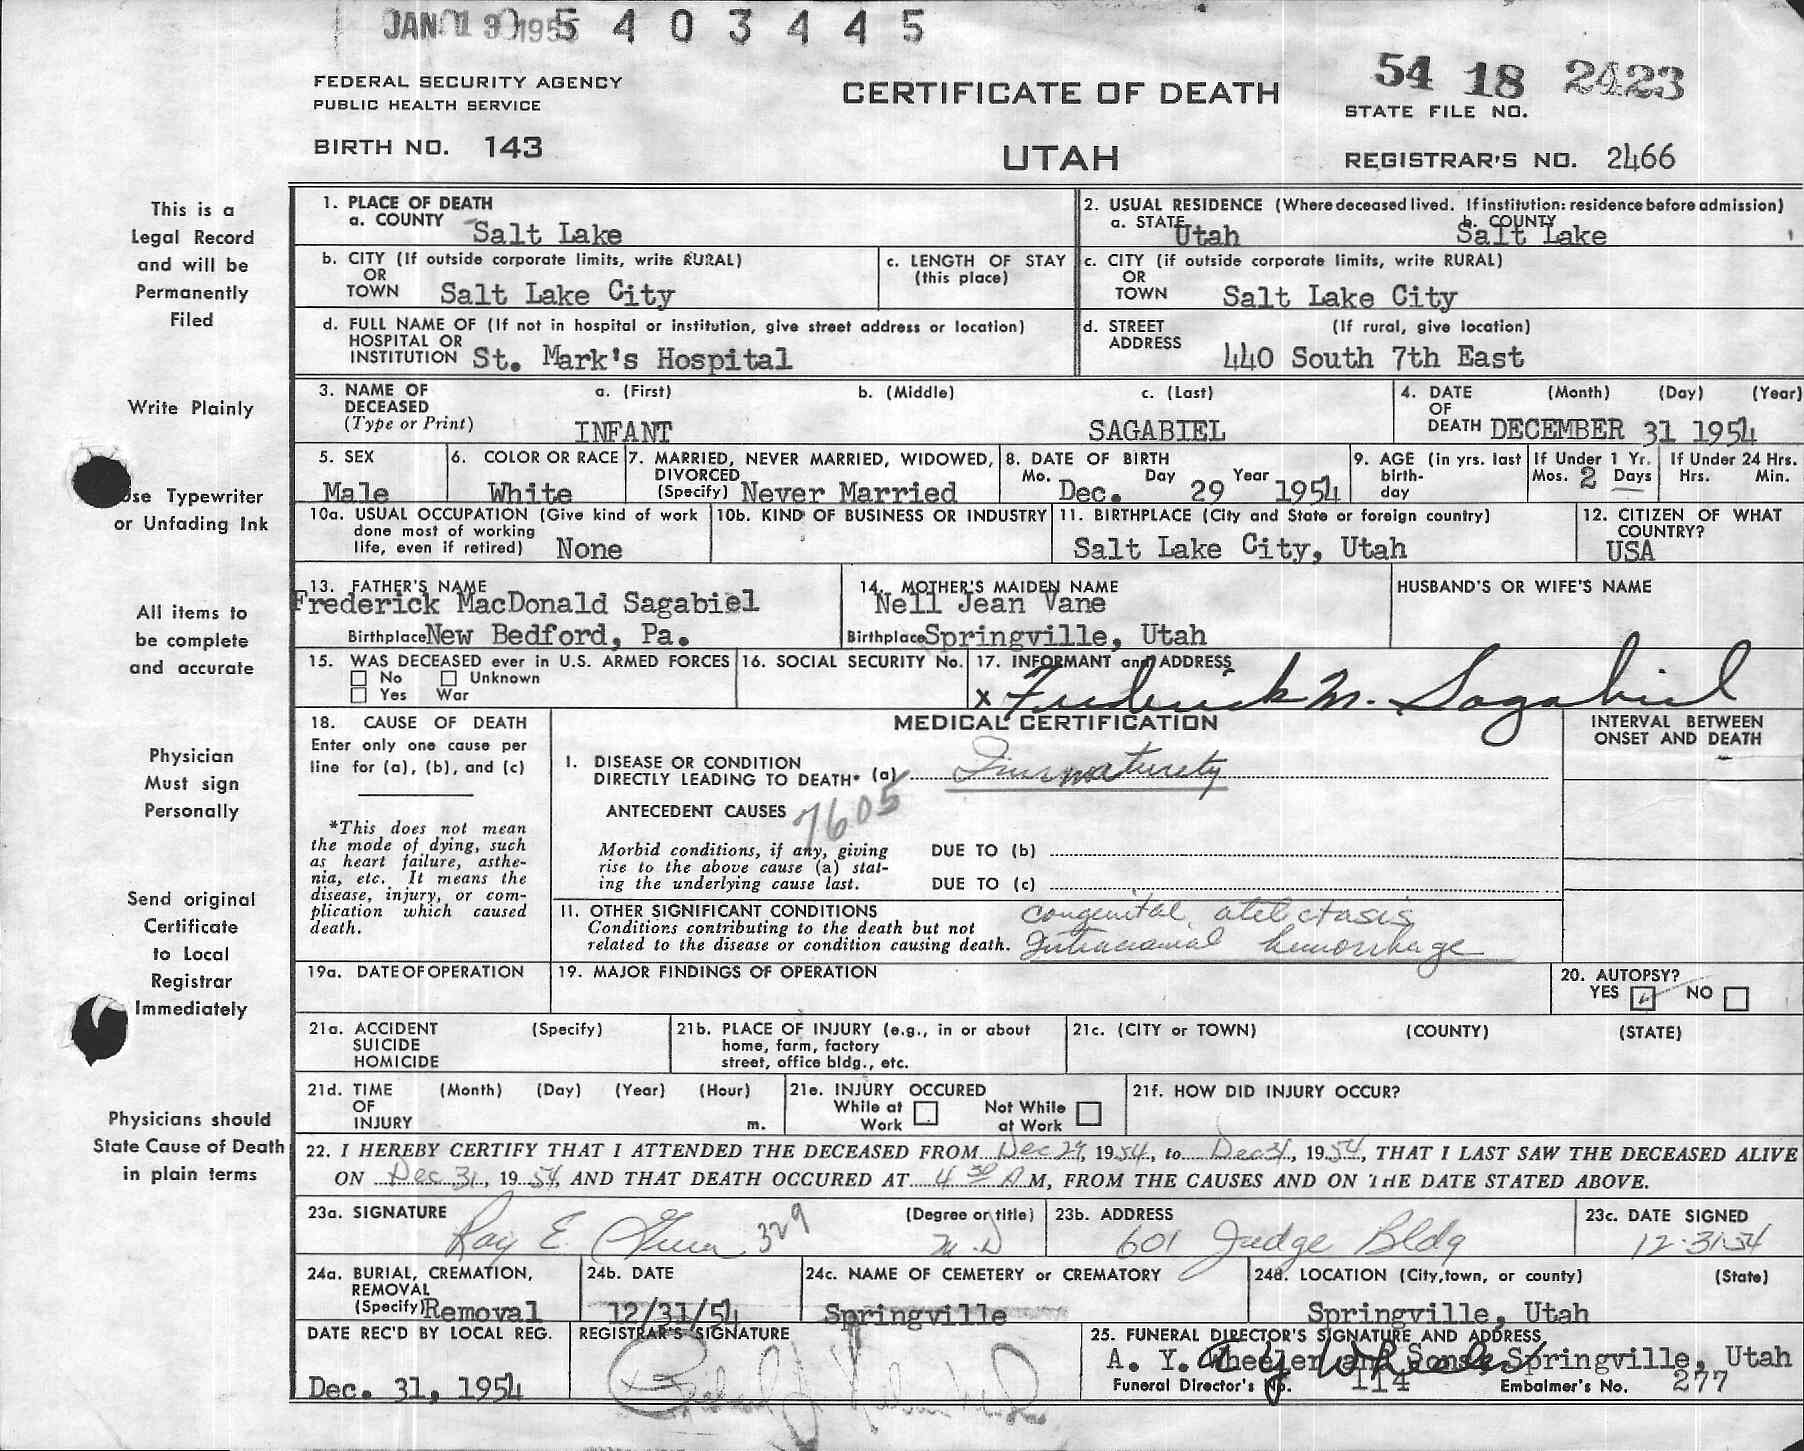 JAN 19 1955 5403445
FEDERAL SECURITY AGENCY
PUBLIC HEALTH SERVICE
BIRTH NO. 143
CERTIFICATE OF DEATH
UTAH
54 18 2423
STATE FILE NO.
REGISTRAR'S NO. 2466
This is a
Legal Record
and will be
Permanently
Filed
Write Plainly
Use Typewriter
or Unfading Ink
All items to
be complete
and accurate
Physician
Must sign
Personally
Send original
Certificate
to Local
Registrar
Immediately
Physicians should
State Cause of Death
in plain terms
1. PLACE OF DEATH
a. COUNTY Salt Lake
2. USUAL RESIDENCE (Where deceased lived. If institution: residence before admission)
a. STATE Utah b. COUNTY Salt Lake
b. CITY (If outside corporate limits, write RURAL)
OR
TOWN Salt Lake City
c. LENGTH OF STAY
(this place)
c. CITY (if outside corporate limits, write RURAL)
OR
TOWN Salt Lake City
d. FULL NAME OF (If not in hospital or institution, give street address or location)
HOSPITAL OR
INSTITUTION St. Mark's Hospital
d. STREET (If rural, give location)
ADDRESS 440 South 7th East
3. NAME OF a. (First) b. (Middle) c. (Last)
DECEASED
(Type or Print) INFANT SAGABIEL
4. DATE (Month) (Day) (Year)
OF
DEATH DECEMBER 31 1954
5. SEX
Male
6. COLOR OR RACE
White
7. MARRIED, NEVER MARRIED, WIDOWED,
DIVORCED
(Specify) Never Married
8. DATE OF BIRTH
Mo. Day Year
Dec. 29 1954
9. AGE (in yrs. last
birth-
day
If Under 1 Yr.
Mos. 2 Days
If Under 24 Hrs.
Hrs. Min.
10a. USUAL OCCUPATION (Give kind of work
done most of working
life, even if retired) None
10b. KIND OF BUSINESS OR INDUSTRY
11. BIRTHPLACE (City and State or foreign country)
Salt Lake City, Utah
12. CITIZEN OF WHAT
COUNTRY?
USA
13. FATHER'S NAME
Frederick MacDonald Sagabiel
Birthplace New Bedford, Pa.
14. MOTHER'S MAIDEN NAME
Nell Jean Vane
Birthplace Springville, Utah
HUSBAND'S OR WIFE'S NAME
15. WAS DECEASED ever in U.S. ARMED FORCES
No Unknown
Yes War
16. SOCIAL SECURITY No.
17. INFORMANT and ADDRESS
x Frederick M. Sagabiel
18. CAUSE OF DEATH
Enter only one cause per
line for (a), (b), and (c)
*This does not mean
the mode of dying, such
as heart failure, asthe-
nia, etc. It means the
disease, injury, or com-
plication which caused
death.
MEDICAL CERTIFICATION
INTERVAL BETWEEN
ONSET AND DEATH
I. DISEASE OR CONDITION
DIRECTLY LEADING TO DEATH* (a) Immaturety
ANTECEDENT CAUSES 7605
Morbid conditions, if any, giving
rise to the above cause (a) stat-
ing the underlying cause last.
DUE TO (b)
DUE TO (c)
II. OTHER SIGNIFICANT CONDITIONS
Conditions contributing to the death but not
related to the disease or condition causing death.
Congenital atelectasis
Intracranial hemorrhage
19a. DATE OF OPERATION
19. MAJOR FINDINGS OF OPERATION
20. AUTOPSY?
YES NO
21a. ACCIDENT (Specify)
SUICIDE
HOMICIDE
21b. PLACE OF INJURY (e.g., in or about
home, farm, factory
street, office bldg., etc.
21c. (CITY or TOWN) (COUNTY) (STATE)
21d. TIME (Month) (Day) (Year) (Hour)
OF
INJURY m.
21e. INJURY OCCURED
While at Work Not While at Work
21f. HOW DID INJURY OCCUR?
22. I HEREBY CERTIFY THAT I ATTENDED THE DECEASED FROM Dec 29, 1954, to Dec 31, 1954, THAT I LAST SAW THE DECEASED ALIVE
ON Dec 31, 1954, AND THAT DEATH OCCURED AT 4 30 A M, FROM THE CAUSES AND ON THE DATE STATED ABOVE.
23a. SIGNATURE (Degree or title)
Ray E. 329 M.D
23b. ADDRESS
601 Judge Bldg
23c. DATE SIGNED
12-31-54
24a. BURIAL, CREMATION,
REMOVAL
(Specify) Removal
24b. DATE
12/31/54
24c. NAME OF CEMETERY or CREMATORY
Springville
24d. LOCATION (City, town, or county) (State)
Springville, Utah
DATE REC'D BY LOCAL REG.
Dec. 31, 1954
REGISTRAR'S SIGNATURE
25. FUNERAL DIRECTOR'S SIGNATURE AND ADDRESS
A. Y. Wheeler and Sons, Springville, Utah
Funeral Director's No. 114 Embalmer's No. 277